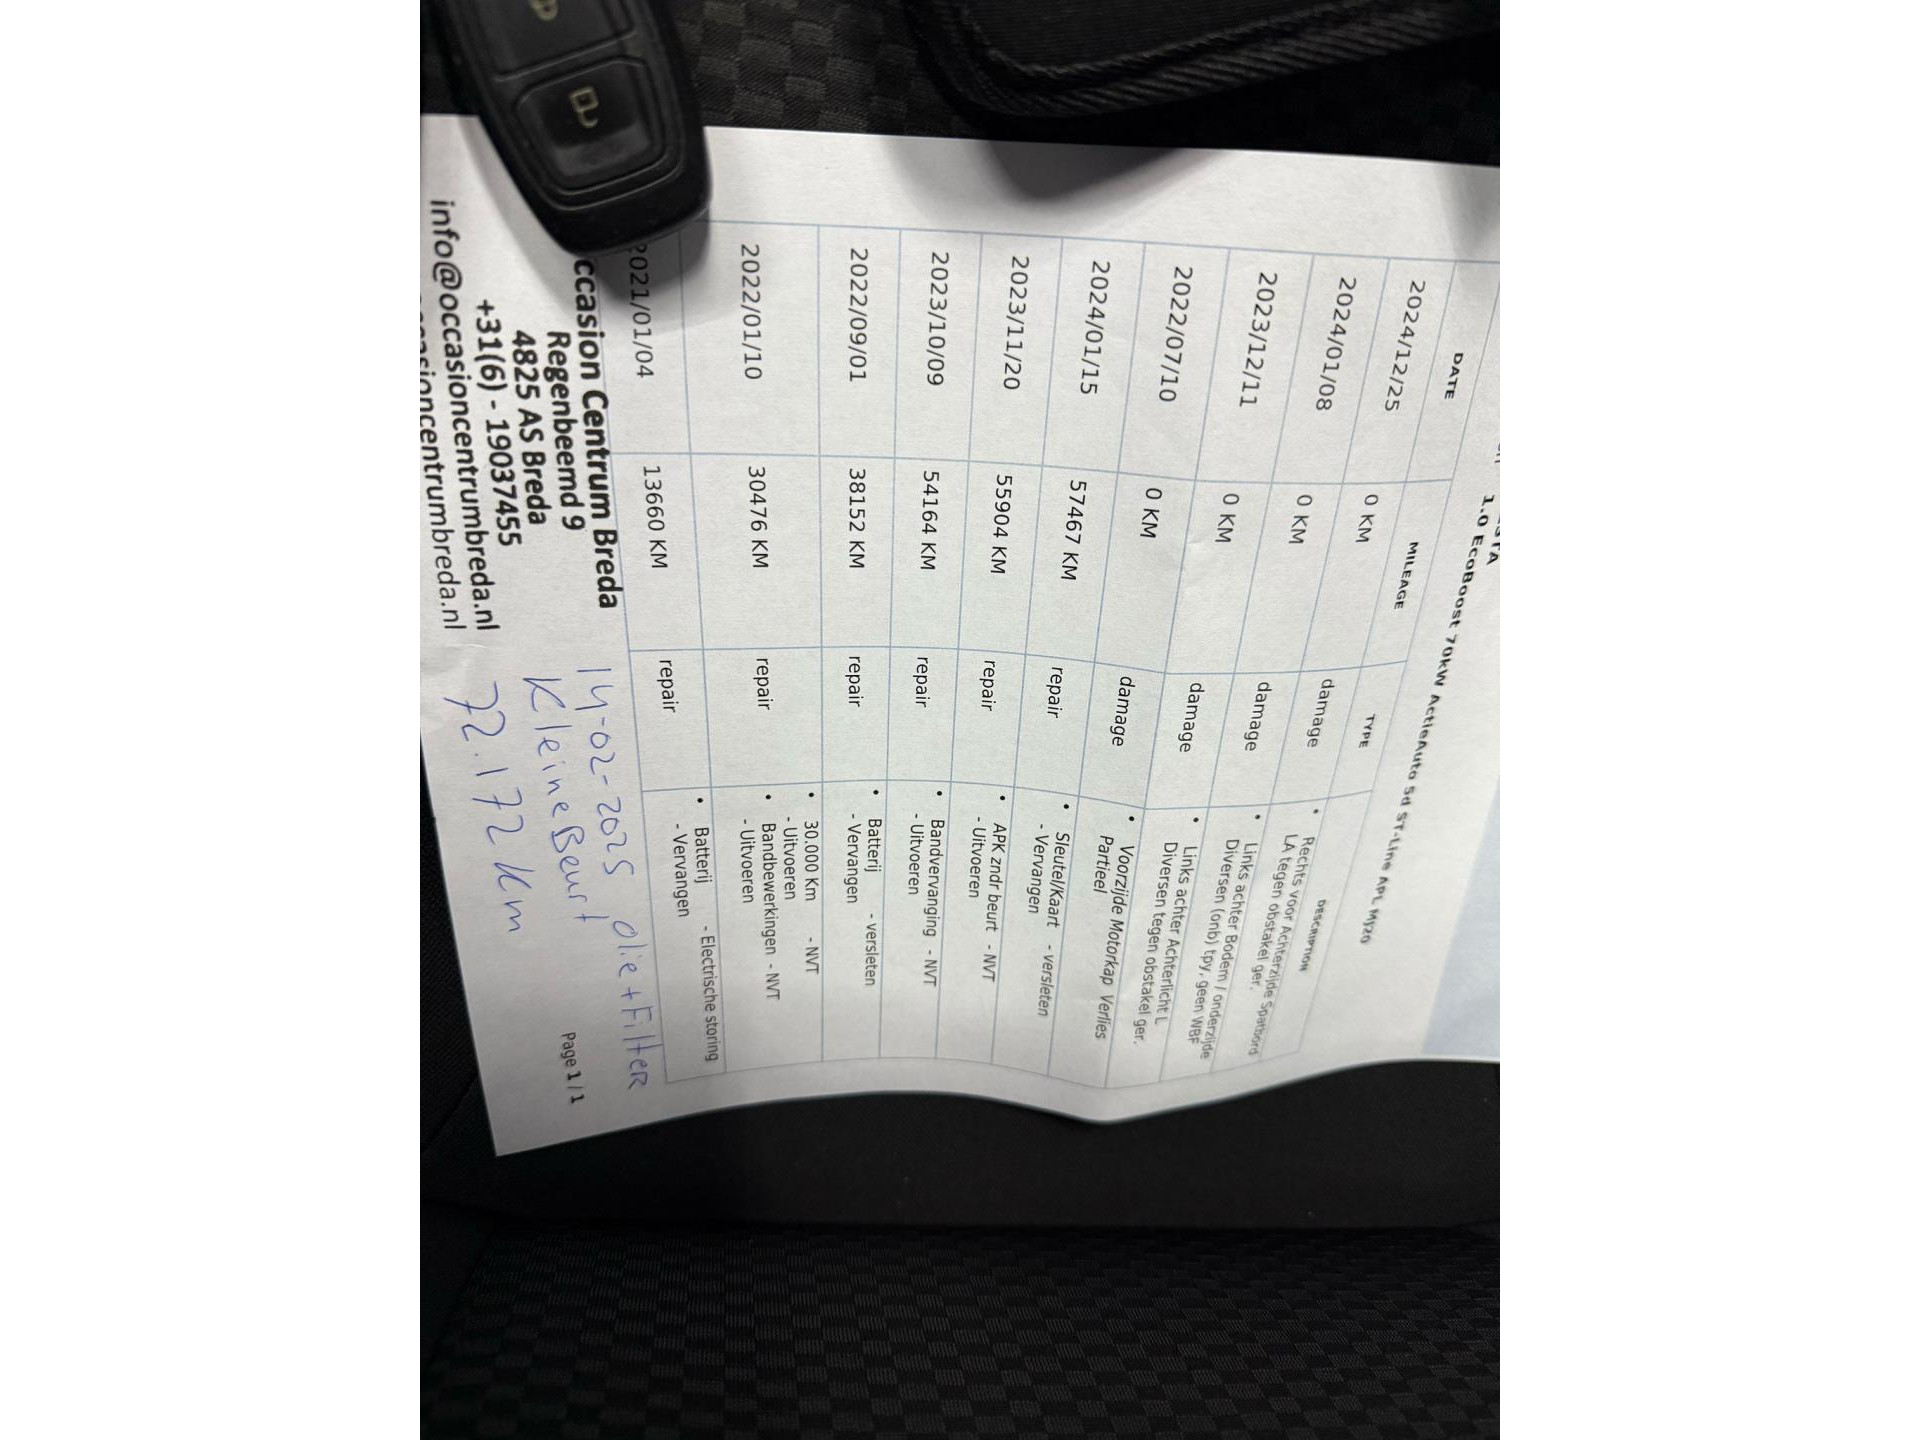 1.0 EcoBoost 70kW ActieAuto 5d ST-Line APL MJ20
DATE MILEAGE TYPE DESCRIPTION
2024/12/25 0 KM damage • Rechts voor Achterzijde Spatbord
LA tegen obstakel ger.
2024/01/08 0 KM damage • Links achter Bodem / onderzijde
Diversen (onb) tpv, geen WBF
2023/12/11 0 KM damage • Links achter Achterlicht L
Diversen tegen obstakel ger.
2022/07/10 0 KM damage • Voorzijde Motorkap Verlies
Partieel
2024/01/15 57467 KM repair • Sleutel/Kaart - versleten
- Vervangen
2023/11/20 55904 KM repair • APK zndr beurt - NVT
- Uitvoeren
2023/10/09 54164 KM repair • Bandvervanging - NVT
- Uitvoeren
2022/09/01 38152 KM repair • Batterij - versleten
- Vervangen
2022/01/10 30476 KM repair • 30.000 Km - NVT
- Uitvoeren
• Bandbewerkingen - NVT
- Uitvoeren
2021/01/04 13660 KM repair • Batterij - Electrische storing
- Vervangen
ccasion Centrum Breda
Regenbeemd 9
4825 AS Breda
+31(6) - 19037455
info@occasioncentrumbreda.nl
occasioncentrumbreda.nl
14-02-2025 olie + Filter
Kleine Beurt
72.172 Km
Page 1 / 1